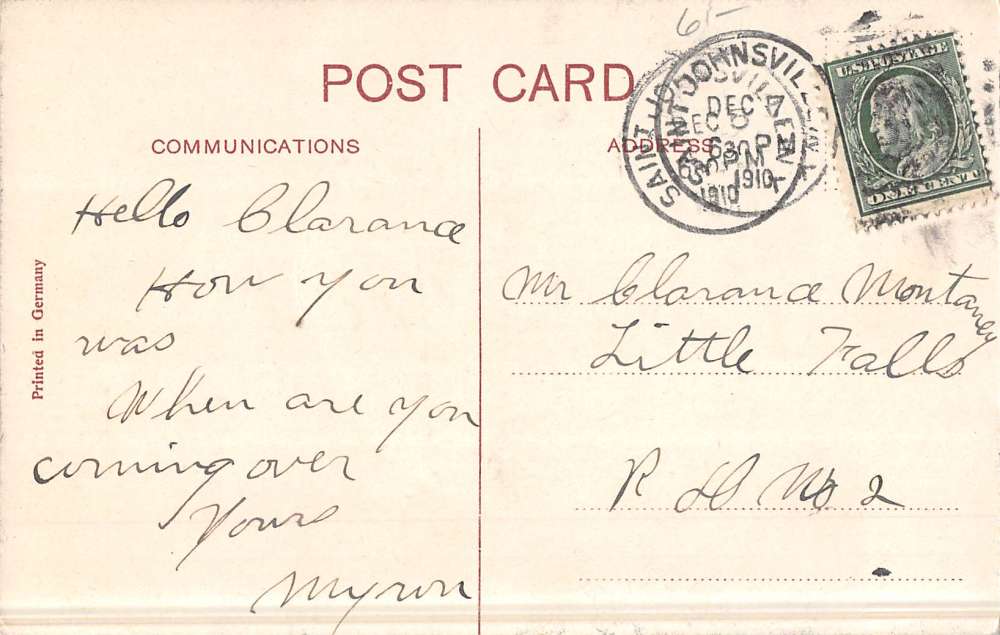 6-
POST CARD
COMMUNICATIONS
ADDRESS
Printed in Germany
Hello Clarance
How you
was
When are you
coming over
Yours
Myron
SAINT JOHNSVILLE
DEC 7
630 PM
1910
U.S. POSTAGE
ONE CENT
Mr Clarance Montaney
Little Falls
R D No 2